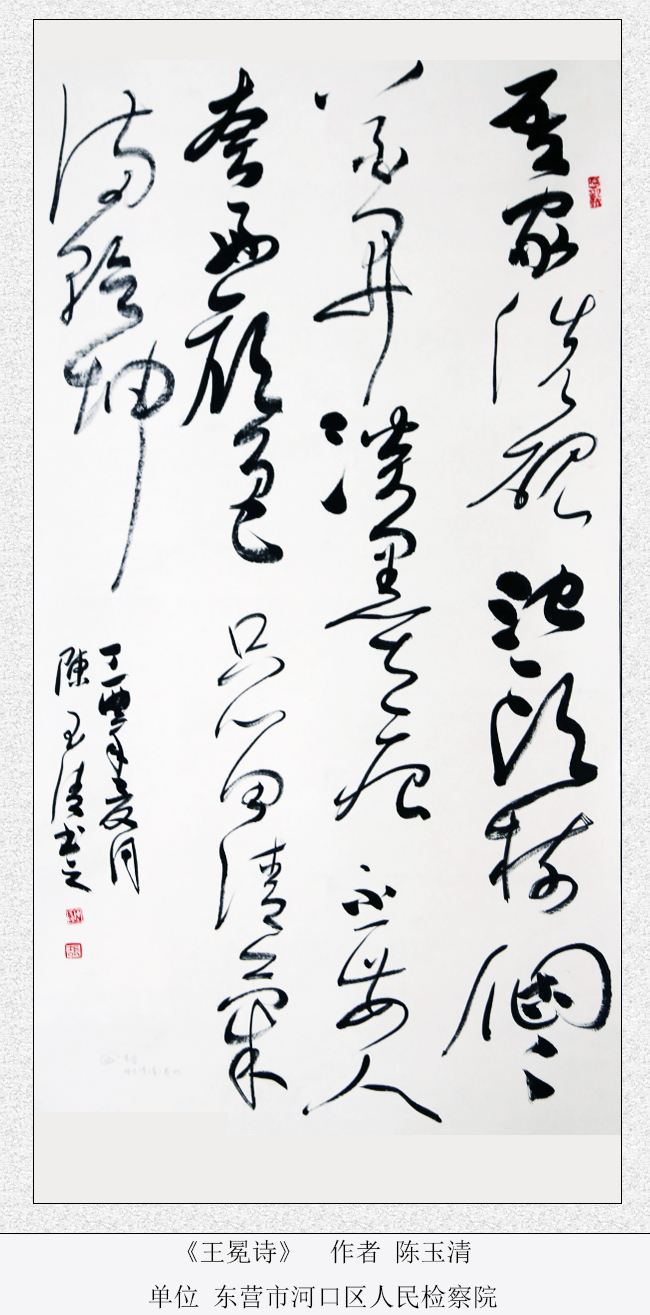 吾家洗硯池頭樹個々
花開淡墨痕不要人
夸好顏色只留清氣
滿乾坤
丁酉年夏月
陳玉清书之
《王冕诗》 作者 陈玉清
单位 东营市河口区人民检察院